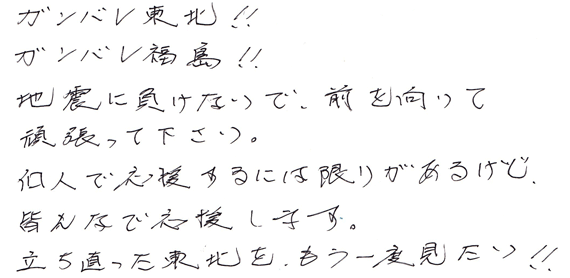 ガンバレ東北!!
ガンバレ福島!!
地震に負けないで、前を向いて
頑張って下さい。
個人で応援するには限りがあるけど、
皆んなで応援します。
立ち直った東北を、もう一度見たい!!